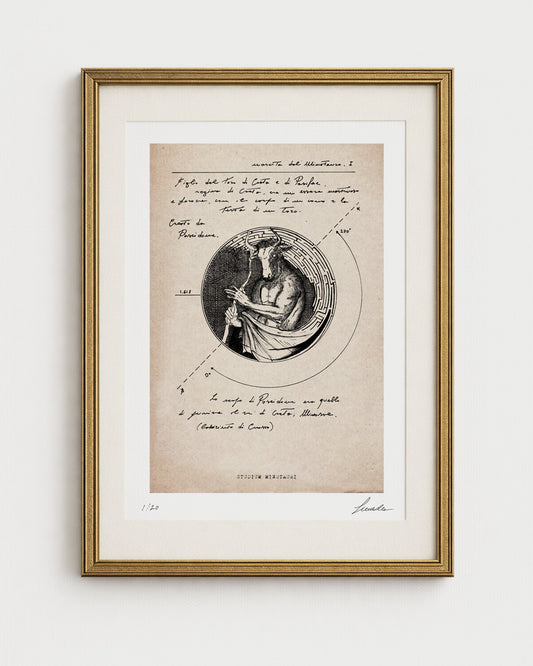 nascita del Minotauro. I
Figlio del Toro di Creta e di Pasifae,
regina di Creta, era un essere mostruoso
e feroce, con il corpo di un uomo e la
testa di un toro.
Creato da
Poseidone.
A
230°
1.618
0°
B
Lo scopo di Poseidone era quello
di punire il re di Creta, Minosse.
(Labirinto di Cnosso)
STUDIUM MINOTAURI
1/20